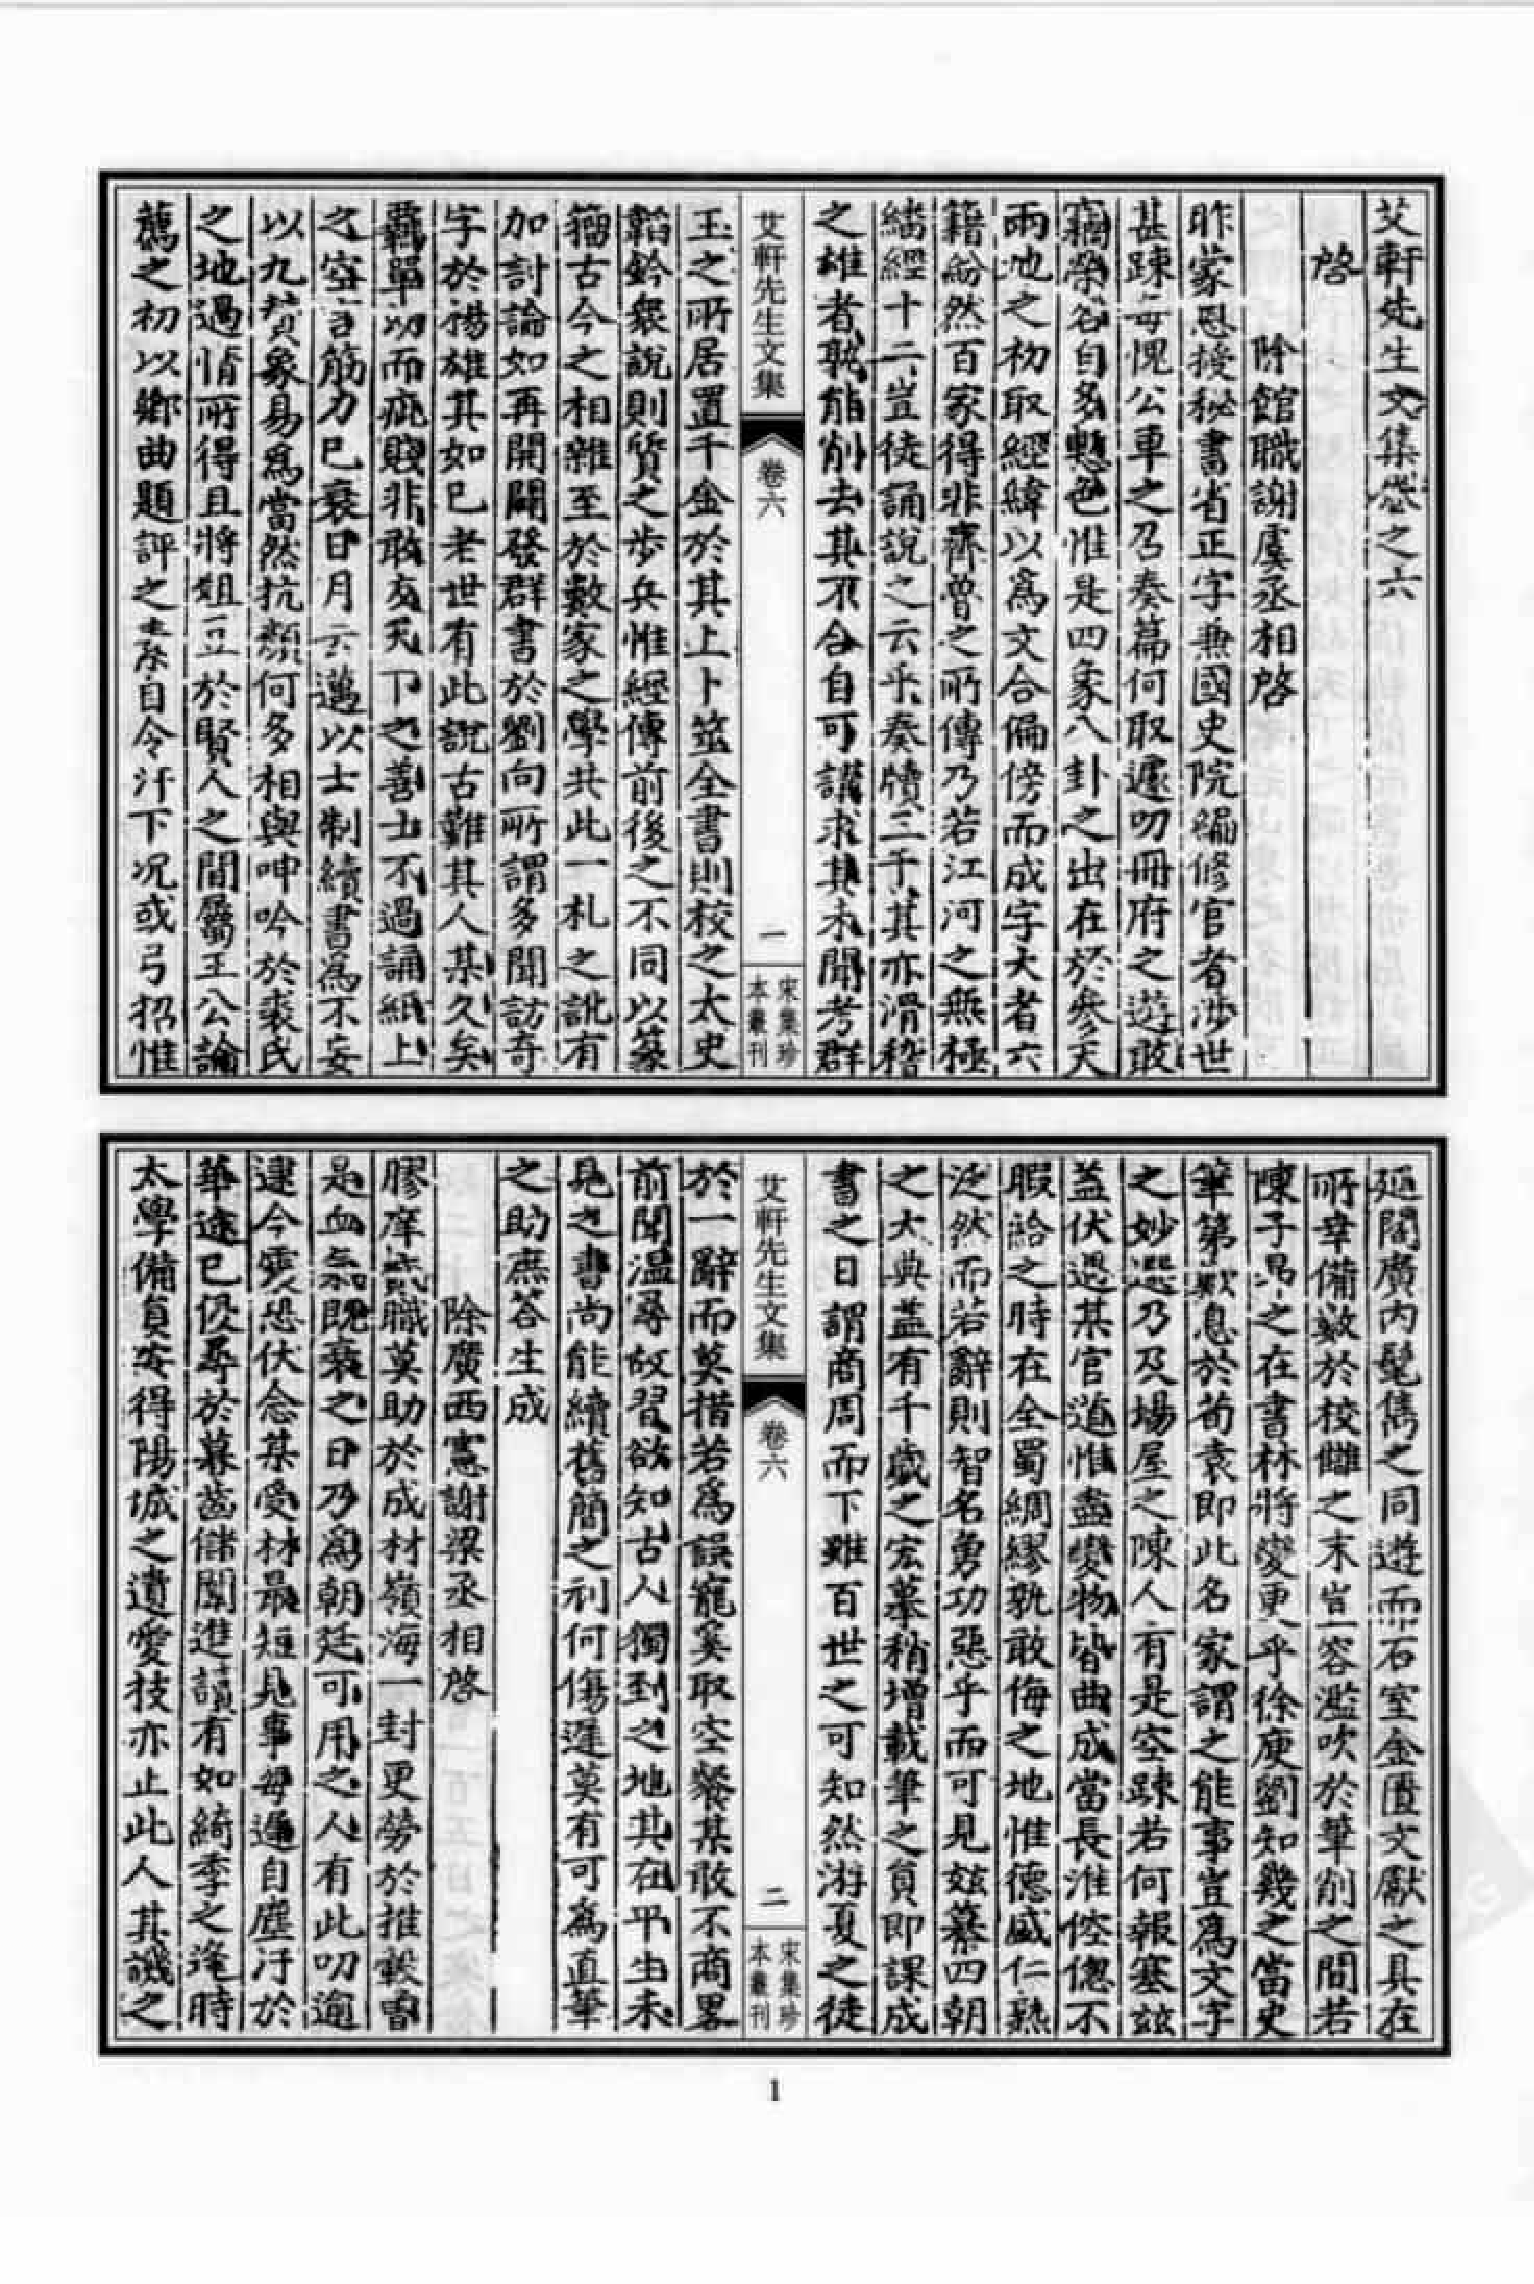 艾軒先生文集卷之六
啓
除館職謝虞丞相啓
昨蒙恩授秘書省正字兼國史院編修官者涉世
甚踈每愧公車之乃奏篇何取遽叨冊府之遊敢
竊榮名自多慙色惟是四象八卦之出在於參天
兩地之初取經緯以爲文合偏傍而成字大者六
籍紛然百家得非齊魯之所傳乃若江河之無極
繙經十二豈徒誦說之云乎奏牘三千其亦滑稽
之雄者孰能削去其不合自可講求其未聞考群
艾軒先生文集
卷六
一
宋集珍
本叢刊
玉之所居置千金於其上卜筮全書則校之太史
韜鈐衆說則質之步兵惟經傳前後之不同以篆
籀古今之相雜至於數家之學共此一札之訛有
加討論如再開闢發群書於劉向所謂多聞訪奇
字於揚雄其如已老世有此說古難其人某久矣
羈單幼而疵賤非敢友天下之善士不過誦紙上
之空言筋力已衰日月云邁以士制續書爲不妄
以九賛象易爲當然抗顏何多相與呻吟於裘氏
之地過情所得且將俎豆於賢人之間屬王公論
薦之初以鄉曲題評之素自令汗下况或弓招惟
延閣廣內髦雋之同遊而石室金匱文獻之具在
所幸備數於校讎之末豈容濫吹於筆削之間若
陳子昂之在書林將變更乎徐庾劉知幾之當史
筆第歎息於荀袁即此名家謂之能事豈爲文字
之妙選乃及場屋之陳人有是空踈若何報塞茲
蓋伏遇某官道惟盡變物皆曲成當長淮倥偬不
暇給之時在全蜀綢繆孰敢侮之地惟德盛仁熟
泛然而若辭則智名勇功惡乎而可見茲纂四朝
之大典蓋有千歲之宏摹稍增載筆之員即課成
書之日謂商周而下雖百世之可知然游夏之徒
艾軒先生文集
卷六
二
宋集珍
本叢刊
於一辭而莫措若爲誤寵奚取空餐某敢不商畧
前聞溫尋故習欲知古人獨到之地其在平生未
見之書尚能續舊簡之利何傷遲莫有可爲直筆
之助庶荅生成
除廣西憲謝梁丞相啓
膠庠貳職莫助於成材嶺海一封更勞於推轂當
是血氣既衰之日乃爲朝廷可用之人有此叨逾
逮今震恐伏念某受材最短見事每遲自塵汙於
華途已侵尋於暮齒儲闈進讀有如綺季之逢時
太學備員安得陽城之遺愛技亦止此人其譏之
1